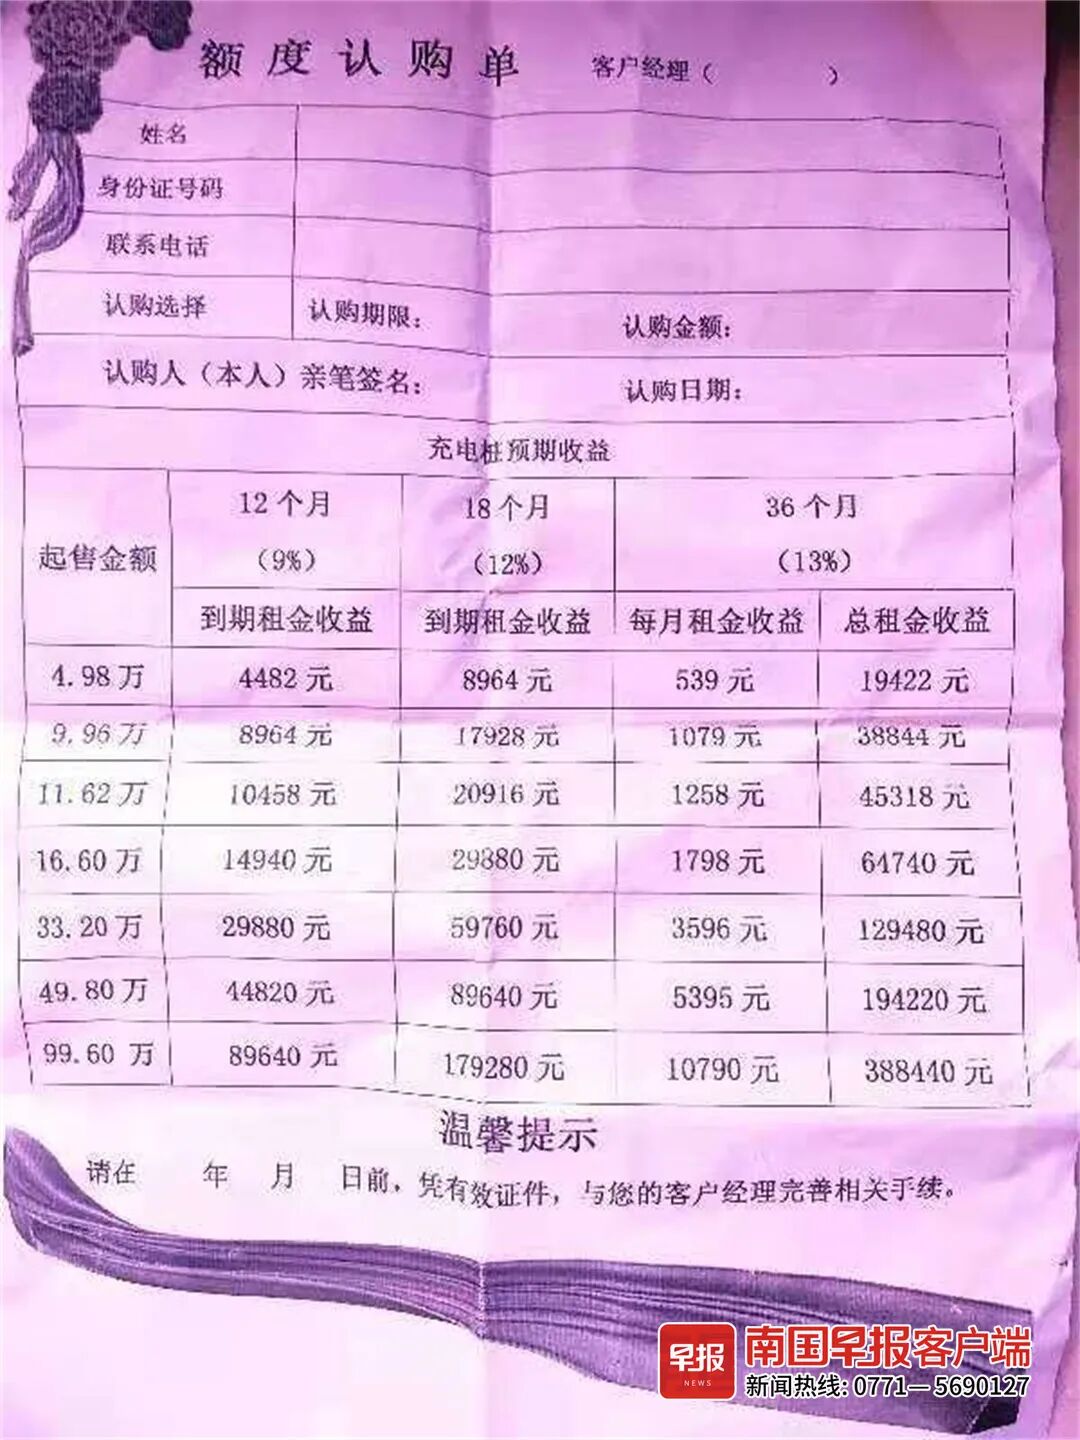 额度认购单 客户经理（ ）
姓名
身份证号码
联系电话
认购选择 认购期限： 认购金额：
认购人（本人）亲笔签名： 认购日期：
充电桩预期收益
起售金额 12个月 18个月 36个月
（9%） （12%） （13%）
到期租金收益 到期租金收益 每月租金收益 总租金收益
4.98万 4482元 8964元 539元 19422元
9.96万 8964元 17928元 1079元 38844元
11.62万 10458元 20916元 1258元 45318元
16.60万 14940元 29880元 1798元 64740元
33.20万 29880元 59760元 3596元 129480元
49.80万 44820元 89640元 5395元 194220元
99.60万 89640元 179280元 10790元 388440元
温馨提示
请在 年 月 日前，凭有效证件，与您的客户经理完善相关手续。
早报 NEWS 南国早报客户端
新闻热线：0771—5690127